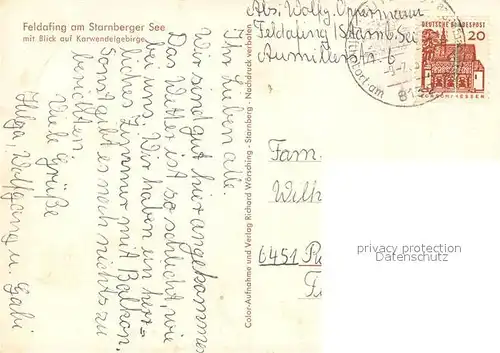 Feldafing am Starnberger See
mit Blick auf Karwendelgebirge
Ihr Lieben alle
Wir sind gut hier angekommen
Das Wetter ist so schlecht, wie
bei uns. Wir haben ein herr=
liches Zimmer mit Balkon.
Sonst gibt es noch nichts zu
berichten.
Viele Grüße
Helga, Wolfgang u. Gabi
Color-Aufnahme und Verlag Richard Wörsching - Starnberg - Nachdruck verboten
Abs. Wolfg. Oppermann
Feldafing / Starnb. See
DEUTSCHE BUNDESPOST
20
813
Fam.
6451
privacy protection
Datenschutz